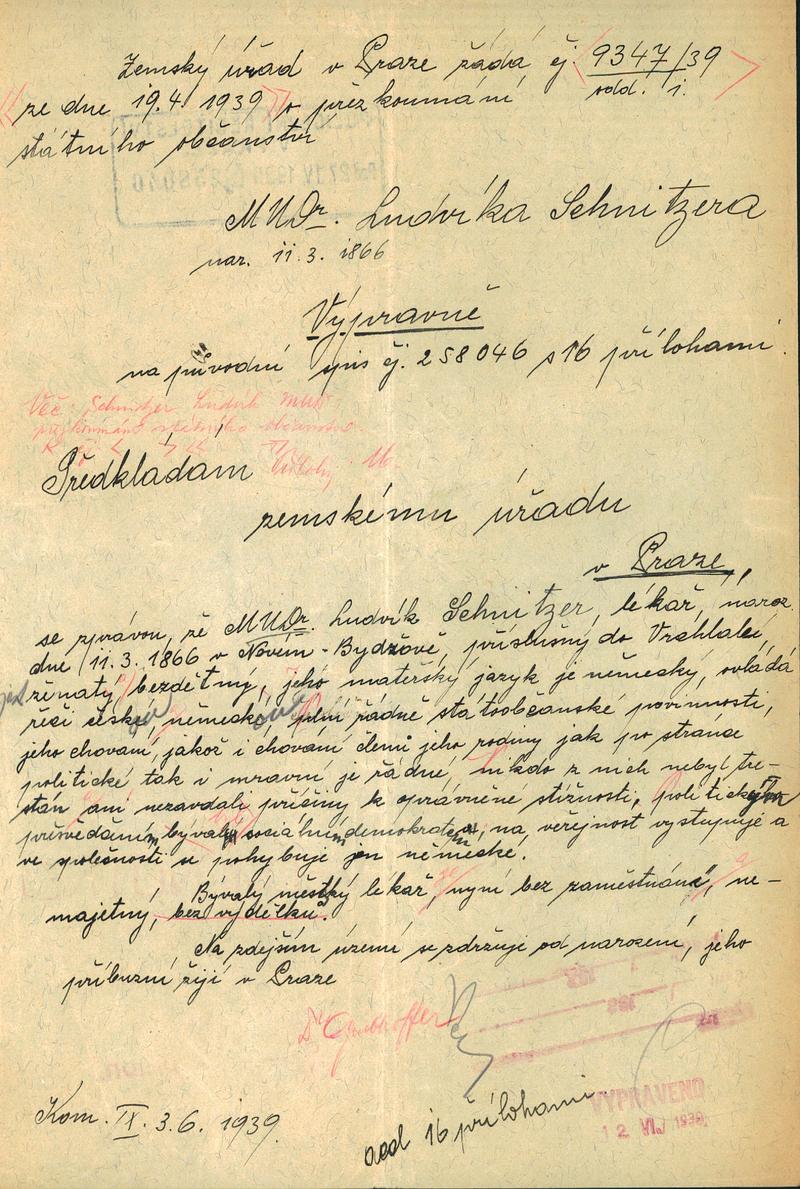 Zemský úřad v Praze žádá čj. 9347/39
odd. i.
ze dne 19.4. 1939 o přezkoumání
státního občanství
MUDr. Ludvíka Schnitzera
nar. 11.3. 1866
Výpravně
na původní spis čj. 258046 s 16 přílohami.
Věc: Schnitzer Ludvík MUDr
přezkoumání státního občanství.
Přílohy 16.
Předkládám
zemskému úřadu
v Praze,
se zprávou, že MUDr. Ludvík Schnitzer, lékař, naroz.
dne 11.3. 1866 v Novém-Bydžově, příslušný do Vrchlabí,
jest ženatý, bezdětný, jeho mateřský jazyk je německý, ovládá
řeči české, německé, plní řádně státoobčanské povinnosti,
jeho chování, jakož i chování členů jeho rodiny jak po stránce
politické tak i mravní je řádné, nikdo z nich nebyl tre-
stán ani nezavdali příčiny k oprávněné stížnosti, politickým
přesvědčením býval sociálním demokratem, na veřejnost vystupuje a
ve společnosti se pohybuje jen německé.
Bývalý městský lékař, nyní bez zaměstnání, ne-
majetný, bez výdělku.
Na zdejším území se zdržuje od narození, jeho
příbuzní žijí v Praze
Kom. IX. 3.6. 1939.
acd 16 přílohami
VYPRAVENO
12 VI. 1939